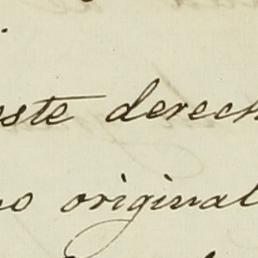 este derech
no original